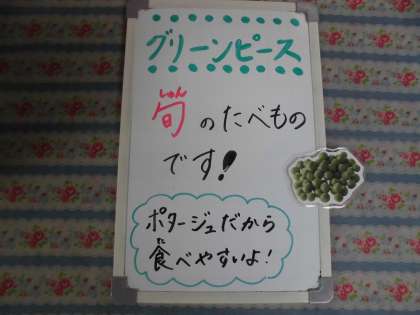 グリーンピース
しゅん
旬のたべもの
です!
ポタージュだから
た
食べやすいよ!